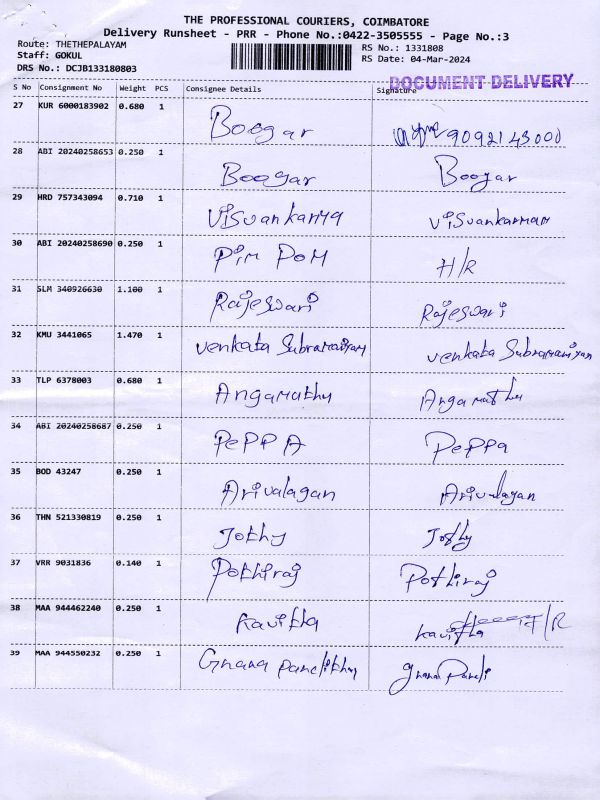 THE PROFESSIONAL COURIERS, COIMBATORE
Delivery Runsheet - PRR - Phone No.:0422-3505555 - Page No.:3
Route: THETHEPALAYAM RS No.: 1331808
Staff: GOKUL RS Date: 04-Mar-2024
DRS No.: DCJB133180803
DOCUMENT DELIVERY
S No Consignment No Weight PCS Consignee Details Signature
27 KUR 6000183902 0.680 1 Boogar 9092143000
28 ABI 20240258653 0.250 1 Boogar Boogar
29 HRD 757343094 0.710 1 Visvankarma Visvankarmar
30 ABI 20240258690 0.250 1 Pim Pom H/R
31 SLM 340926630 1.100 1 Rajeswari Rajeswari
32 KMU 3441065 1.470 1 Venkata Subramaniyam Venkata Subramaniyan
33 TLP 6378003 0.680 1 Angamuthu Angamuthu
34 ABI 20240258687 0.250 1 PePPA PePPa
35 BOD 43247 0.250 1 Arivalagan Arivalagan
36 THN 521330819 0.250 1 Jothy Jothy
37 VRR 9031836 0.140 1 Pothiraj Pothiraj
38 MAA 944462240 0.250 1 Kavitha Kavitha H/R
39 MAA 944550232 0.250 1 Gnana Pandithy gnana Pandi